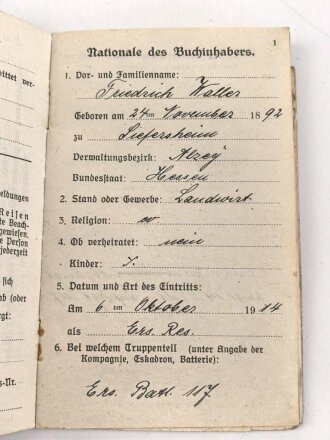 ittet ver-
eldungen
Reisen
te Beach-
gewiesen.
Person
jederzeit
sich
ab (oder
rgt:
s-Nr.
1
Nationale des Buchinhabers.
1. Vor- und Familienname:
Friedrich Walter
Geboren am 24ten November 1892
zu Siefersheim
Verwaltungsbezirk: Alzey
Bundesstaat: Hessen
2. Stand oder Gewerbe: Landwirt
3. Religion: ev
4. Ob verheiratet: nein
Kinder:
5. Datum und Art des Eintritts:
Am 6 ten Oktober 1914
als Ers. Res.
6. Bei welchem Truppenteil (unter Angabe der
Kompagnie, Eskadron, Batterie):
Ers. Batl. 117